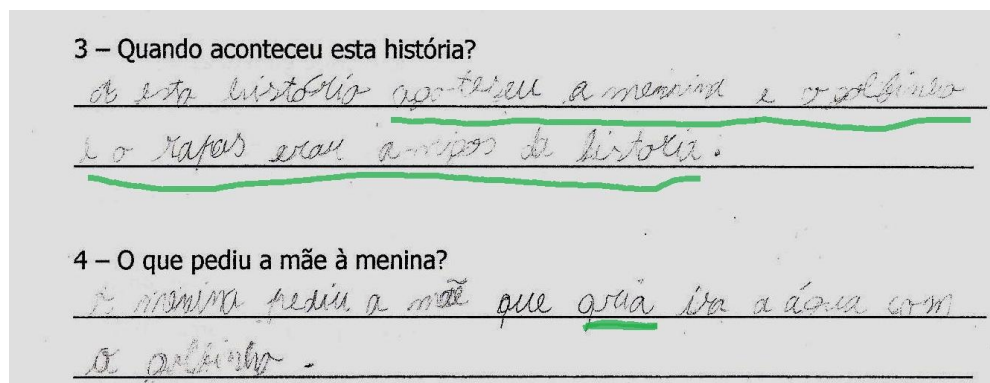 3 – Quando aconteceu esta história?
A esta história aconteseu a mennina e o golfinho
e o rapas erau amigos da história.
4 – O que pediu a mãe à menina?
A menina pediu a mãe que qria ira a água com
o golfinho.